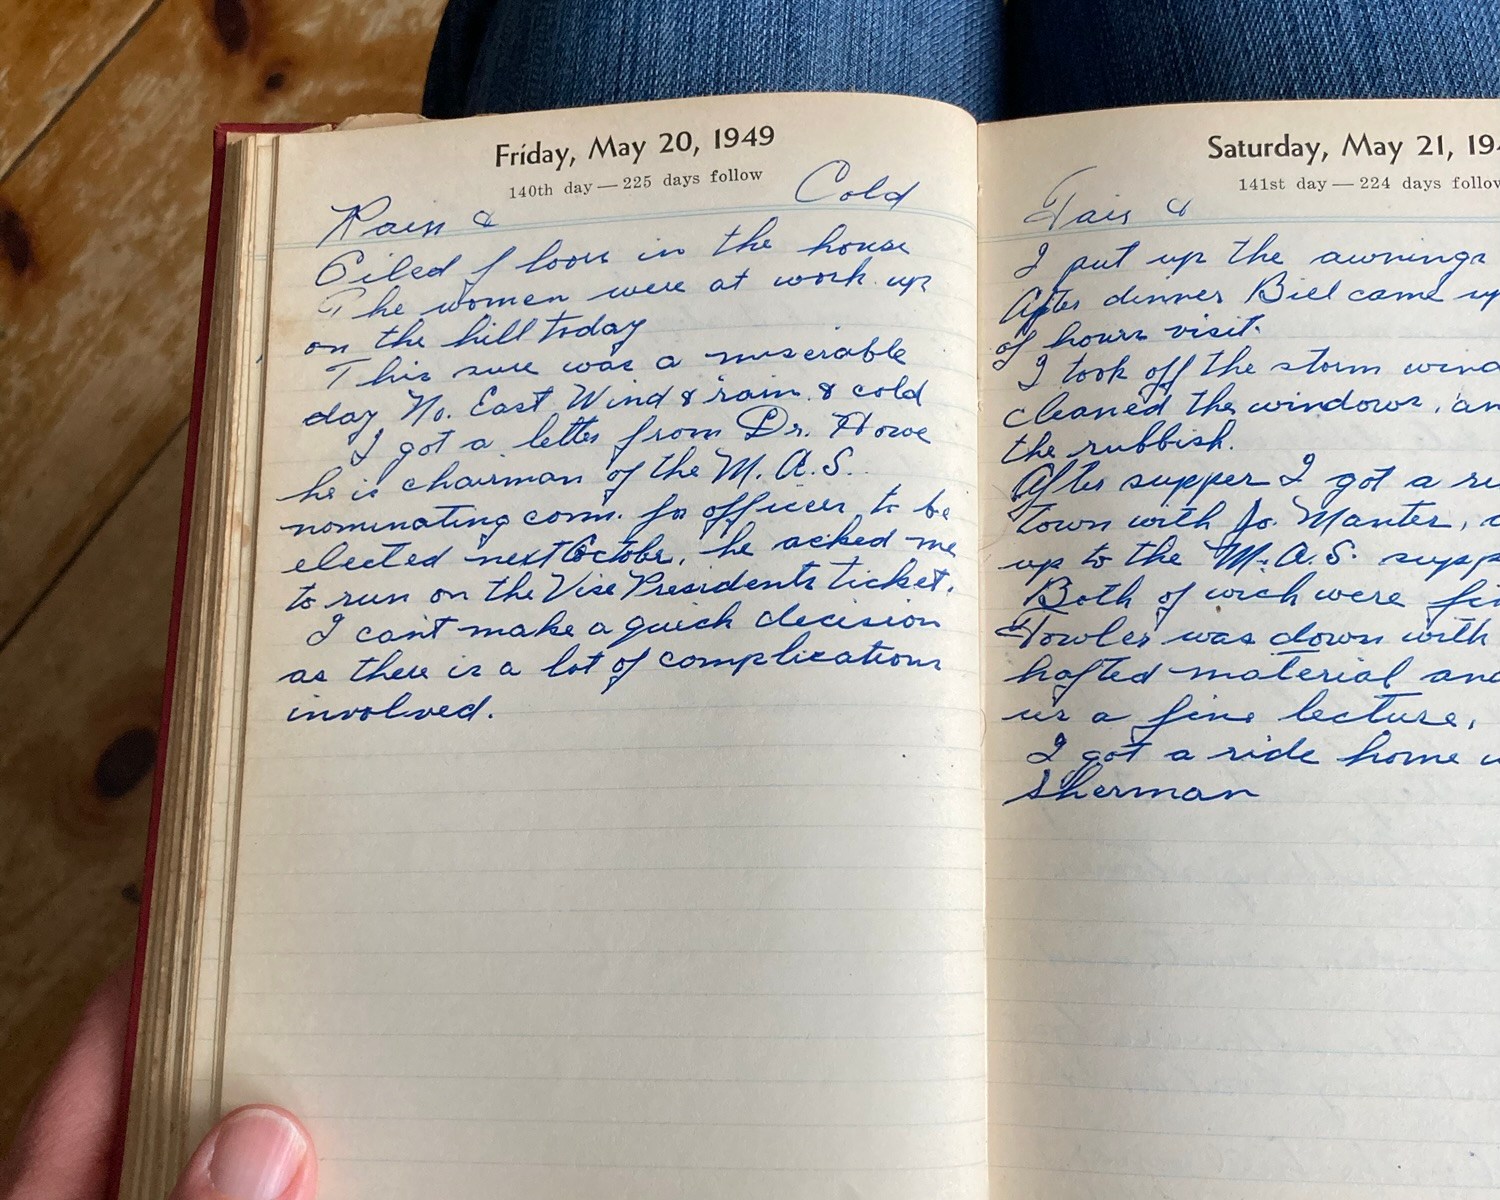 Friday, May 20, 1949
140th day — 225 days follow
Rain & Cold
Oiled floors in the house
The women were at work up
on the hill today
This sure was a miserable
day No. East Wind & rain & cold
I got a letter from Dr. Howe
he is chairman of the M. A. S.
nominating comm. for officers to be
elected next October, he asked me
to run on the Vise Presidents ticket.
I cant make a quick decision
as there is a lot of complications
involved.
Saturday, May 21, 194
141st day — 224 days follow
Fair &
I put up the awnings
After dinner Bill came up
of hours visit.
I took off the storm wind
cleaned the windows, an
the rubbish.
After supper I got a ri
town with Jo. Manter,
up to the M. A. S. supp
Both of wich were fin
Fowler was down with
hafted material and
us a fine lecture,
I got a ride home w
Sherman